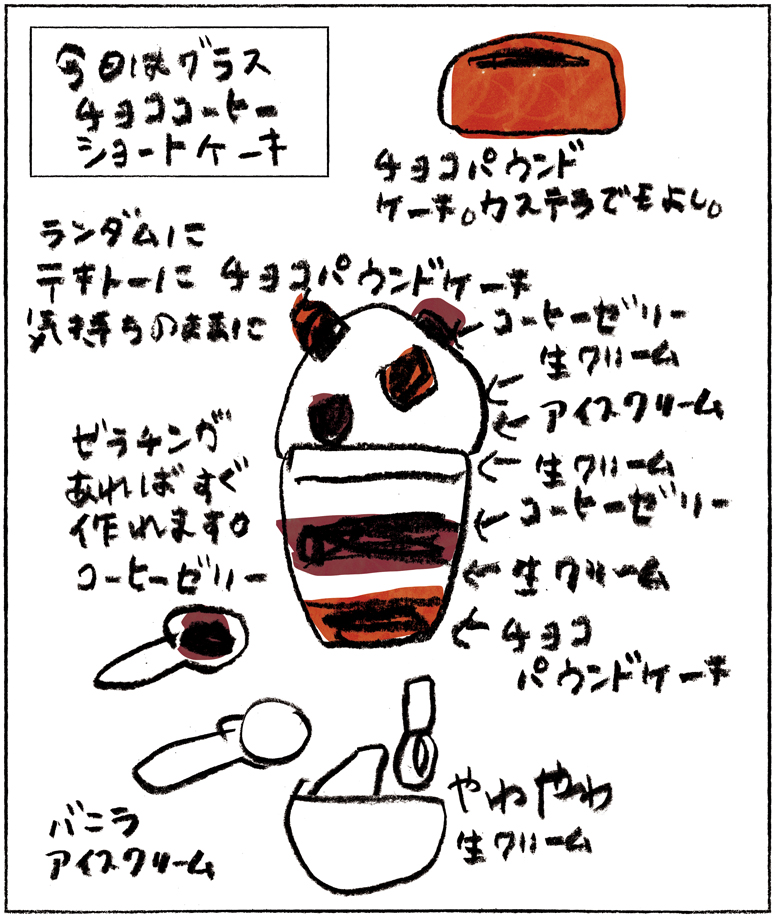 今日はグラス
チョココーヒー
ショートケーキ
チョコパウンド
ケーキ。カステラでもよし。
ランダムに
テキトーに
気持ちのままに
チョコパウンドケーキ
コーヒーゼリー
生クリーム
アイスクリーム
生クリーム
コーヒーゼリー
生クリーム
チョコ
パウンドケーキ
ゼラチング
あればすぐ
作れます。
コーヒーゼリー
バニラ
アイスクリーム
やわやわ
生クリーム